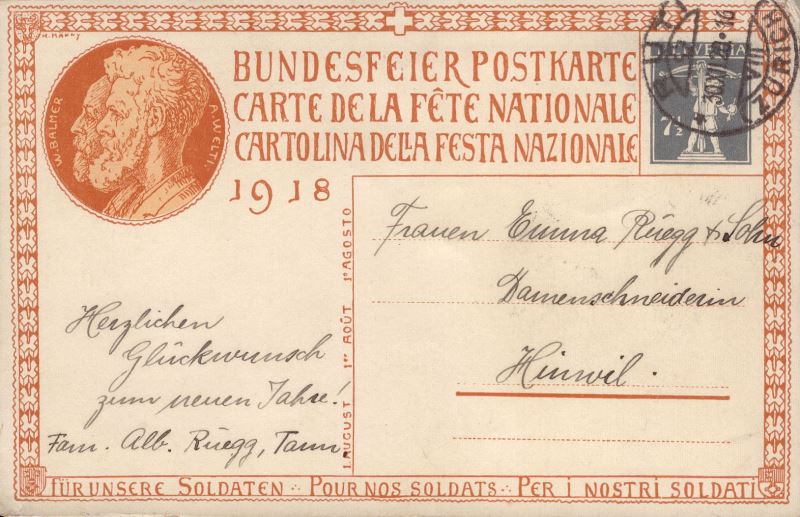 BUNDESFEIER POSTKARTE
CARTE DE LA FÊTE NATIONALE
CARTOLINA DELLA FESTA NAZIONALE
1918
W. BALMER
A. WELTI.
HELVETIA
7½
RÜTI
(ZÜRICH)
1. AUGUST 1er AOÛT 1º AGOSTO
Frauen Emma Rüegg & Sohn
Damenschneiderin
Hinwil.
Herzlichen
Glückwunsch
zum neuen Jahre!
Fam. Alb. Rüegg, Tann.
FÜR UNSERE SOLDATEN · POUR NOS SOLDATS · PER I NOSTRI SOLDATI